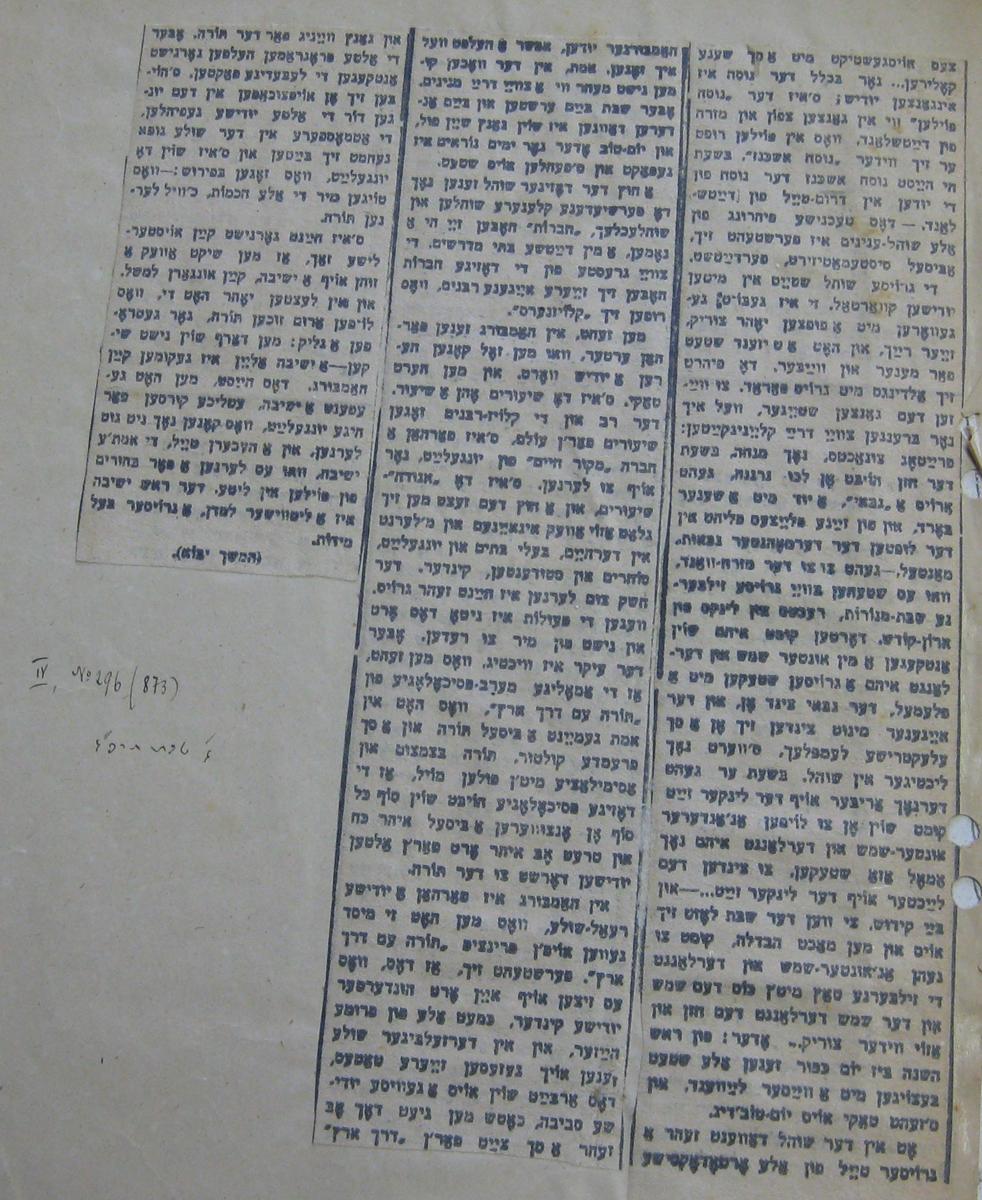 צעם אויסגעשטיקט מיט אַ סך שענע
קאָלירען... גאָר בכלל דער נוסח איז
אינגאַנצען יודיש; ס'איז דער „נוסח
פּוילען" ווי אין גאַנצען צפון און מזרח
פון דייטשלאַנד, וואָס אין פּוילען רופט
ער זיך ווידער „נוסח אשכנז", בשעת
היי הייסט נוסח אשכנז דער נוסח פון
די יודען אין דרום-טייל פון דייטש-
לאַנד. — דאָס טעכנישע פיהרונג פון
אַלע שוהל-ענינים איז פערשטעהט זיך,
אַביסעל סיסטעמאַטיזירט, פערדייטשט.
די גרויסע שוהל שטייט אין מיטען
יודישען קוואַרטאַל, די איז געבויט גע-
געוואָרען מיט אַ פופצען יאָהר צוריק,
זייער רייך, און האָט אַ טויזענד שטעט
פאַר מענער און ווייבער. דאָ פיהרט
זיך אַלדינגס מיט גרויס פּאַראַד. צו ווי-
זען דעם גאַנצען שטייגער, וועל איך
נאָר ברענגען צוויי דריי קלייניגקייטען:
פרייטאָג צונאַכטס, נאָך מנחה, בשעת
דער חזן הויבט אָן לכו נרננה, געהט
אַרויס אַ „גבאי", אַ יוד מיט אַ שענער
באָרד, און פון זיינע פּלייצעס פליהט אין
דער לופטען דער דערמאָהנטער גבאות-
מאַנטעל, — געהט צו צו דער מזרח-וואַנד,
וואו עס שטעהען צוויי גרויסע זילבער-
נע שבת-מנורות, רעכטס און לינקס פון
ארון-קודש. דאָרטען קומט איהם שוין
אַנטקעגען אַ מין אונטער שמש און דער-
לאַנגט איהם אַ גרויסען שטעקען מיט אַ
פלעמעל, דער גבאי צינד אָן, און דער
אייגענער מינוט צינדען זיך אָן אַ סך
עלעקטרישע לעמפּלעך, ס'ווערט נאָך
ליכטיגער אין שוהל. בשעת ער געהט
דערנאָך אַריבער אויף דער לינקער זייט
קומט שוין אָן צו לויפען אַנ'אַנדערער
אונטער-שמש און דערלאַנגט איהם נאָך
אַמאָל אַזאַ שטעקען, צו צינדען דעם
לייכטער אויף דער לינקער זייט...—און
ביי קידוש, צי ווען דער שבת לאָזט זיך
אויס און מען מאַכט הבדלה, קומט צו
געהן אַנ'אונטער-שמש און דערלאַנגט
די זילבערנע טאַץ מיט'ן כוס דעם שמש
און דער שמש דערלאַנגט דעם חזן און
אַזוי ווידער צוריק.. אָדער: פון ראש
השנה ביז יום כפור זענען אַלע שטעט
בעצויגען מיט אַ ווייסער לייוענד, און
ס'זעהט טאַקי אויס יום-טוב'דיג.
אָט אין דער שוהל דאַווענט זעהר אַ
גרויסער טייל פון אַלע אָרטאָדאָקסישע
האַמבורגער יודען, אפשר אַ העלפט וועל
איך זאָגען. אמת, אין דער וואָכען קו-
מען נישט מעהר ווי אַ צוויי דריי מנינים,
אָבער שבת ביים ערשטען און ביים אַנ-
דערען דאַווענען איז שוין גאַנץ שיין פול,
און יום-טוב אָדער גאָר ימים נוראים איז
געפּאַקט און ס'פעהלען אויס שטעט.
אַ חוץ דער דאָזיגער שוהל זענען נאָך
דאָ פערשיעדענע קלענערע שוהלען און
שוהלעכלעך, „חברות" האָבען זיי היי אַ
נאָמען, אַ מין דייטשע בתי מדרשים. די
צוויי גרעסטע פון די דאָזיגע חברות
האָבען זיך זייערע אייגענע רבנים, וואָס
רופען זיך „קלויזנערס".
מען זעהט, אין האַמבורג זענען פאַר-
האַן ערטער, וואו מען זאָל קאָנען הע-
רען אַ יודיש וואָרט. און מען הערט
טאַקי. ס'איז דאָ שיעורים אָהן אַ שיעור.
דער רב און די קלויז-רבנים זאָגען
שיעורים פאַר'ן עולם, ס'איז פאַרהאַן אַ
חברה „מקור חיים" פון יונגעלייט, נאָר
אויף צו לערנען. ס'איז דאָ „אגודה"-
שיעורים, און אַ חוץ דעם זעצט מען זיך
גלאַט אַזוי אַוועק אינאיינעם און מ'לערנט
אין דערהיים, בעלי בתים און יונגעלייט,
סוחרים און סטודענטען, קינדער. דער
חשק צום לערנען איז היינט זעהר גרויס.
וועגען די פעולות איז ניטאָ דאָס אָרט
און נישט פון מיר צו רעדען. אָבער
דער עיקר איז וויכטיג, וואָס מען זעהט,
אַז די אַמאָליגע מערב-פּסיכאָלאָגיע פון
„תורה עם דרך ארץ", וואָס האָט אין
אמת געמיינט אַ ביסעל תורה און אַ סך
פרעמדע קולטור, תורה בצמצום און
אַסימילאַציע מיט'ן פולען מויל, אַז די
דאָזיגע פּסיכאָלאָגיע הויבט שוין סוף כל
סוף אָן אָנצווערען אַ ביסעל איהר כח
און טרעט אָב איהר אָרט פאַר'ן אַלטען
יודישען דאָרשט צו דער תורה.
אין האַמבורג איז פאַרהאַן אַ יודישע
רעאַל-שולע, וואָס מען האָט זי מיסד
געווען אויפ'ן פּרינציפּ „תורה עם דרך
ארץ". פערשטעהט זיך, אַז דאָס, וואָס
עס זיצען אויף איין אָרט הונדערטער
יודישע קינדער, כמעט אַלע פון פרומע
הייזער, און אין דערזעלביגער שולע
זענען אויך געזעסען זייערע טאַטעס,
דאָס אַרבייט שוין אויס אַ געוויסע יודי-
שע סביבה, כאָטש מען גיט דאָך אָב
זעהר אַ סך צייט פאַר'ן „דרך ארץ"
און גאַנץ ווייניג פאַר דער תורה. אָבער
די אַלטע פּראָגראַמען העלפען גאָרנישט
אַנטקעגען די לעבעדיגע פאַקטען. ס'הוי-
בען זיך אָן אויפצוכאַפּען אין דעם יונ-
גען דור די אַלטע יודישע געפיהלען,
די אַטמאָספערע אין דער שולע גופא
נעהמט זיך בייטען און ס'איז שוין דאָ
יונגעלייט, וואָס זאָגען בפירוש:—וואָס
טויגען מיר די אַלע חכמות, כ'וויל לער-
נען תורה.
ס'איז היינט גאָרנישט קיין אויסטער-
לישע זאַך, אַז מען שיקט אַוועק אַ
זוהן אויף אַ ישיבה, קיין אונגאַרן למשל.
און אין לעצטען יאָהר האָט די, וואָס
לויפען אַרום זוכען תורה, גאָר געטראָ-
פען אַ גליק: מען דאַרף שוין נישט שי-
קען—אַ ישיבה אַליין איז געקומען קיין
האַמבורג. דאָס הייסט, מען האָט גע-
עפענט אַ ישיבה, עטליכע קורסען פאַר
היגע יונגעלייט, וואָס קאָנען נאָך ניט גוט
לערנען, און אַ העכערן טייל, די אמת'ע
ישיבה, וואו עס לערנען אַ פּאָר בחורים
פון פּוילען אין ליטע. דער ראש ישיבה
איז אַ ליטווישער למדן, אַ גרויסער בעל
מידות.
(המשך יבוא).
IV, № 296 (873)